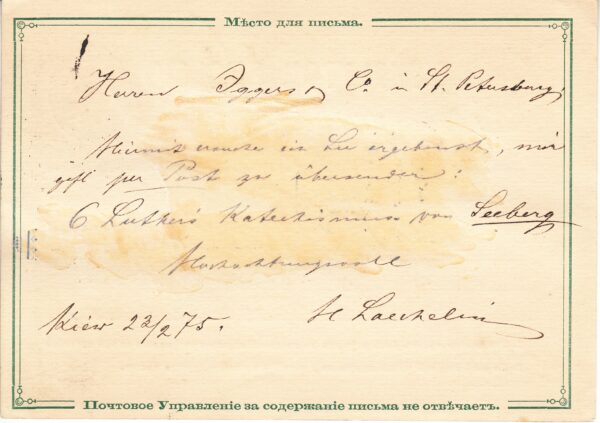 Мѣсто для письма.
Herren Iggers & Co in St. Petersburg,
Hiermit ersuche ich Sie ergebenst, mir
gefl per Post zu übersenden:
6 Luther's Katechismus von Seeberg
Hochachtungsvoll
Kiew 23/2 75.
Почтовое Управленіе за содержаніе письма не отвѣчаетъ.